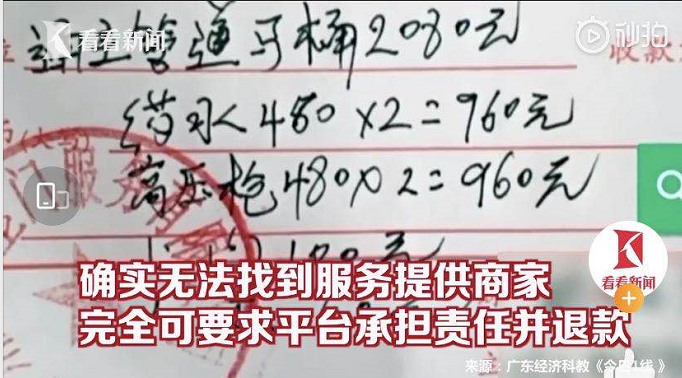 看看新闻
秒拍
通马桶2080元
药水480×2=960元
高压枪480×2=960元
100元
确实无法找到服务提供商家
完全可要求平台承担责任并退款
看看新闻
来源：广东经济科教《今日1线》